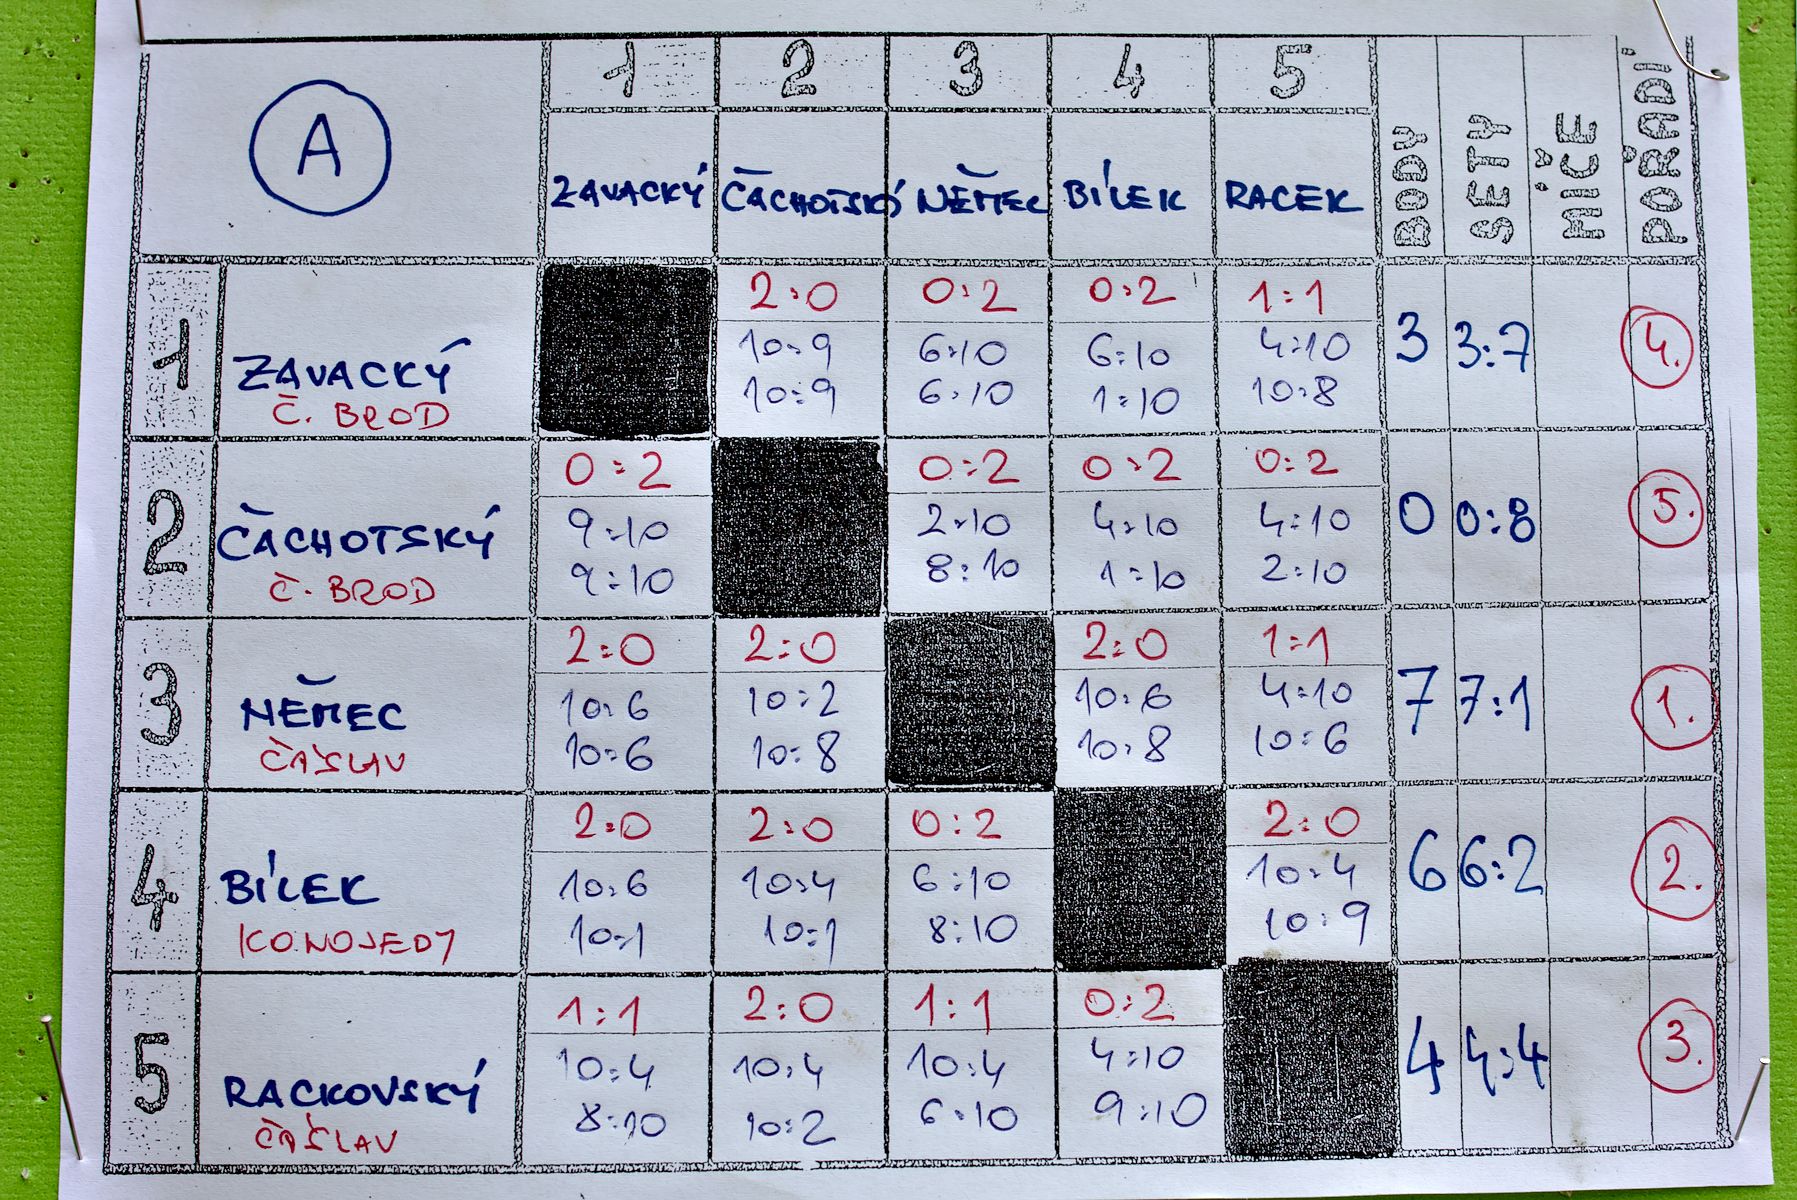 A
1 2 3 4 5
ZAVACKÝ ČÁCHOTSKÝ NĚMEC BÍLEK RACEK BODY SETY MÍČE POŘADÍ
1 ZAVACKÝ
Č. BROD
2:0 0:2 0:2 1:1
10:9 6:10 6:10 4:10
10:9 6:10 1:10 10:8
3 3:7 4.
2 ČÁCHOTSKÝ
Č. BROD
0:2 0:2 0:2 0:2
9:10 2:10 4:10 4:10
9:10 8:10 1:10 2:10
0 0:8 5.
3 NĚMEC
ČÁSLAV
2:0 2:0 2:0 1:1
10:6 10:2 10:6 4:10
10:6 10:8 10:8 10:6
7 7:1 1.
4 BÍLEK
KONOJEDY
2:0 2:0 0:2 2:0
10:6 10:4 6:10 10:4
10:1 10:1 8:10 10:9
6 6:2 2.
5 RACKOVSKÝ
ČÁSLAV
1:1 2:0 1:1 0:2
10:4 10:4 10:4 4:10
8:10 10:2 6:10 9:10
4 4:4 3.